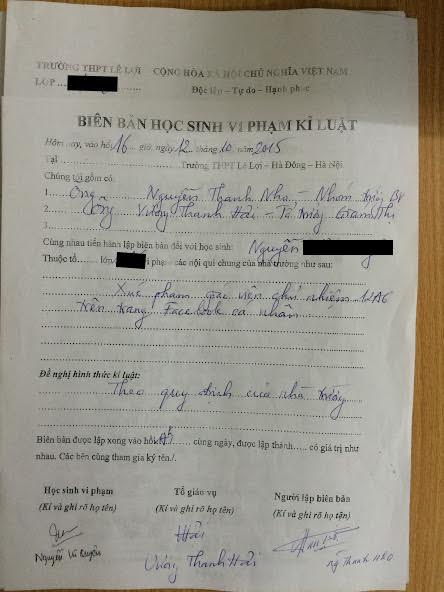 TRƯỜNG THPT LÊ LỢI CỘNG HÒA XÃ HỘI CHỦ NGHĨA VIỆT NAM
LỚP .... Độc lập – Tự do – Hạnh phúc
BIÊN BẢN HỌC SINH VI PHẠM KỈ LUẬT
Hôm nay, vào hồi 16 giờ, ngày 12 tháng 10 năm 2015
Tại .... Trường THPT Lê Lợi – Hà Đông – Hà Nội.
Chúng tôi gồm có:
1. Ông Nguyễn Thanh Nho – Nhóm trưởng BV
2. Ông Vương Thanh Hải – Tổ trưởng Giám Thị
3.
Cùng nhau tiến hành lập biên bản đối với học sinh: Nguyễn
Thuộc tổ ...... lớp vi phạm các nội qui chung của nhà trường như sau:
Xúc phạm giáo viên chủ nhiệm 12A6
trên trang Facebook cá nhân
Đề nghị hình thức kỉ luật:
Theo quy định của nhà trường
Biên bản được lập xong vào hồi cùng ngày, được lập thành..... có giá trị như
nhau. Các bên cùng tham gia ký tên./.
Học sinh vi phạm Tổ giáo vụ Người lập biên bản
(Kí và ghi rõ họ tên) (Kí và ghi rõ họ tên) (Kí và ghi rõ họ tên)
Hải
Nguyễn Vũ Vương Thanh Hải Ng Thanh Nho